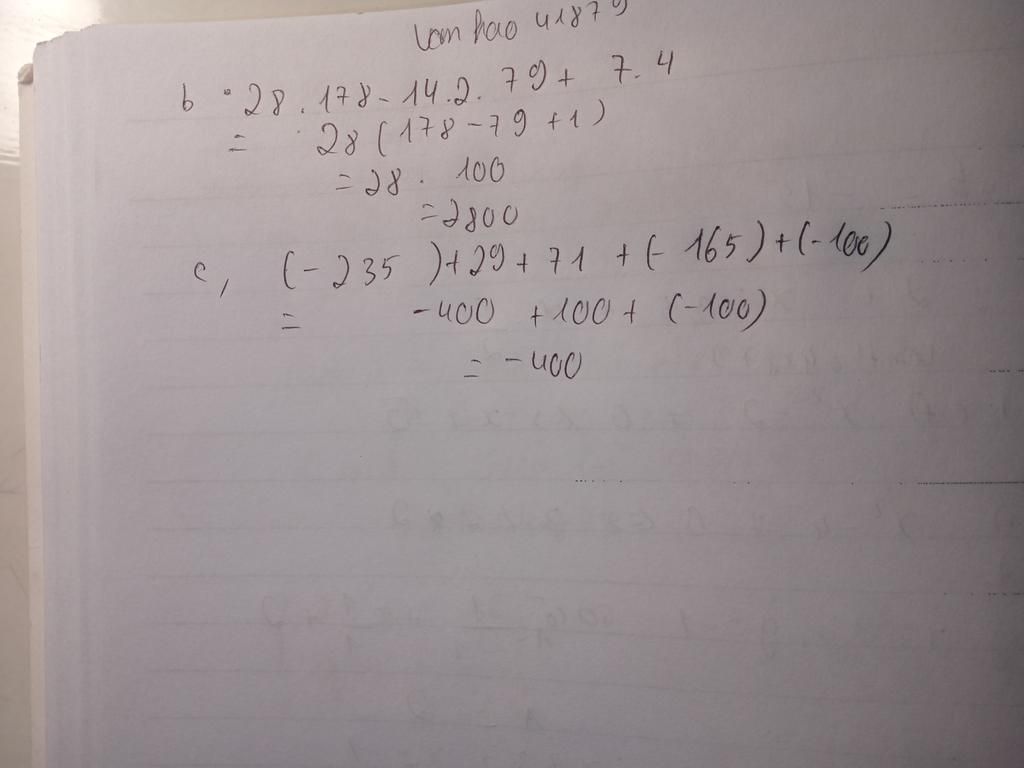 lamhao41879
b • 28 . 178 - 14.2. 79 + 7.4
= 28 ( 178 - 79 + 1 )
= 28 . 100
= 2800
c, (-235 ) + 29 + 71 + (- 165) + (-100)
= -400 + 100 + (-100)
= -400